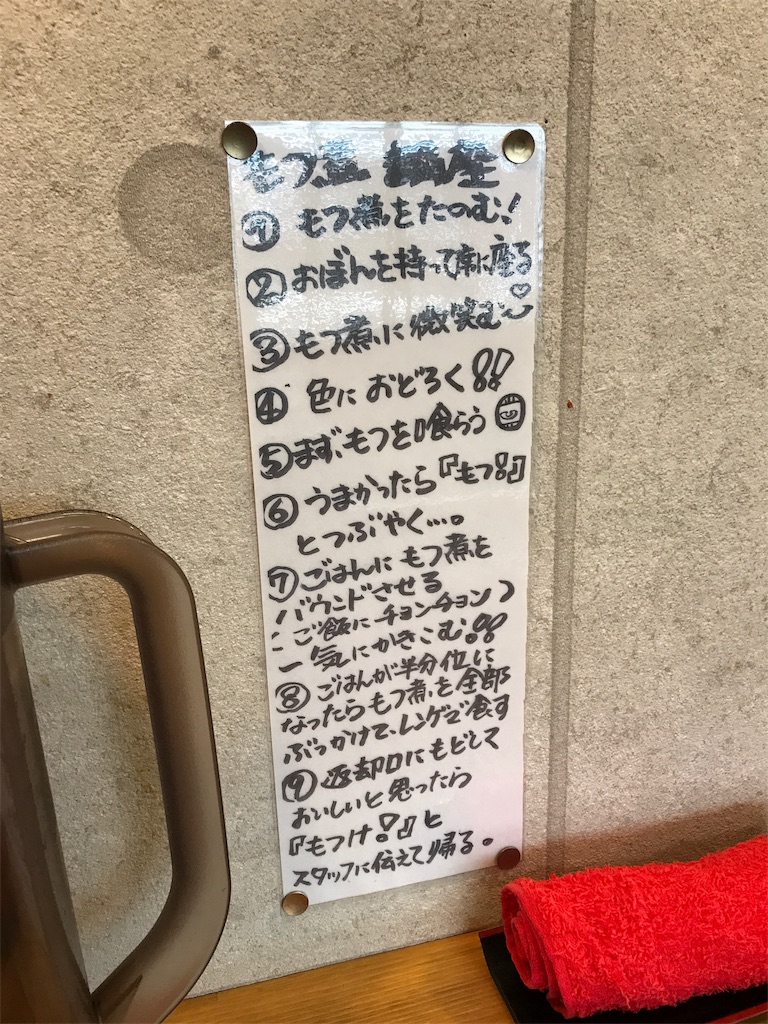 もつ煮 講座
① もつ煮をたのむ!
② おぼんを持って席に座る
③ もつ煮に微笑む♡
④ 色におどろく!!
⑤ まず、もつを喰らう
⑥ うまかったら『もつ!』
とつぶやく…。
⑦ ごはんにもつ煮を
バウンドさせる
(ご飯にチョンチョン)
一気にかきこむ!!
⑧ ごはんが半分位に
なったらもつ煮を全部
ぶっかけて、レンゲで食す
⑨ 返却口にもどして
おいしいと思ったら
『もつけ!』と
スタッフに伝えて帰る。